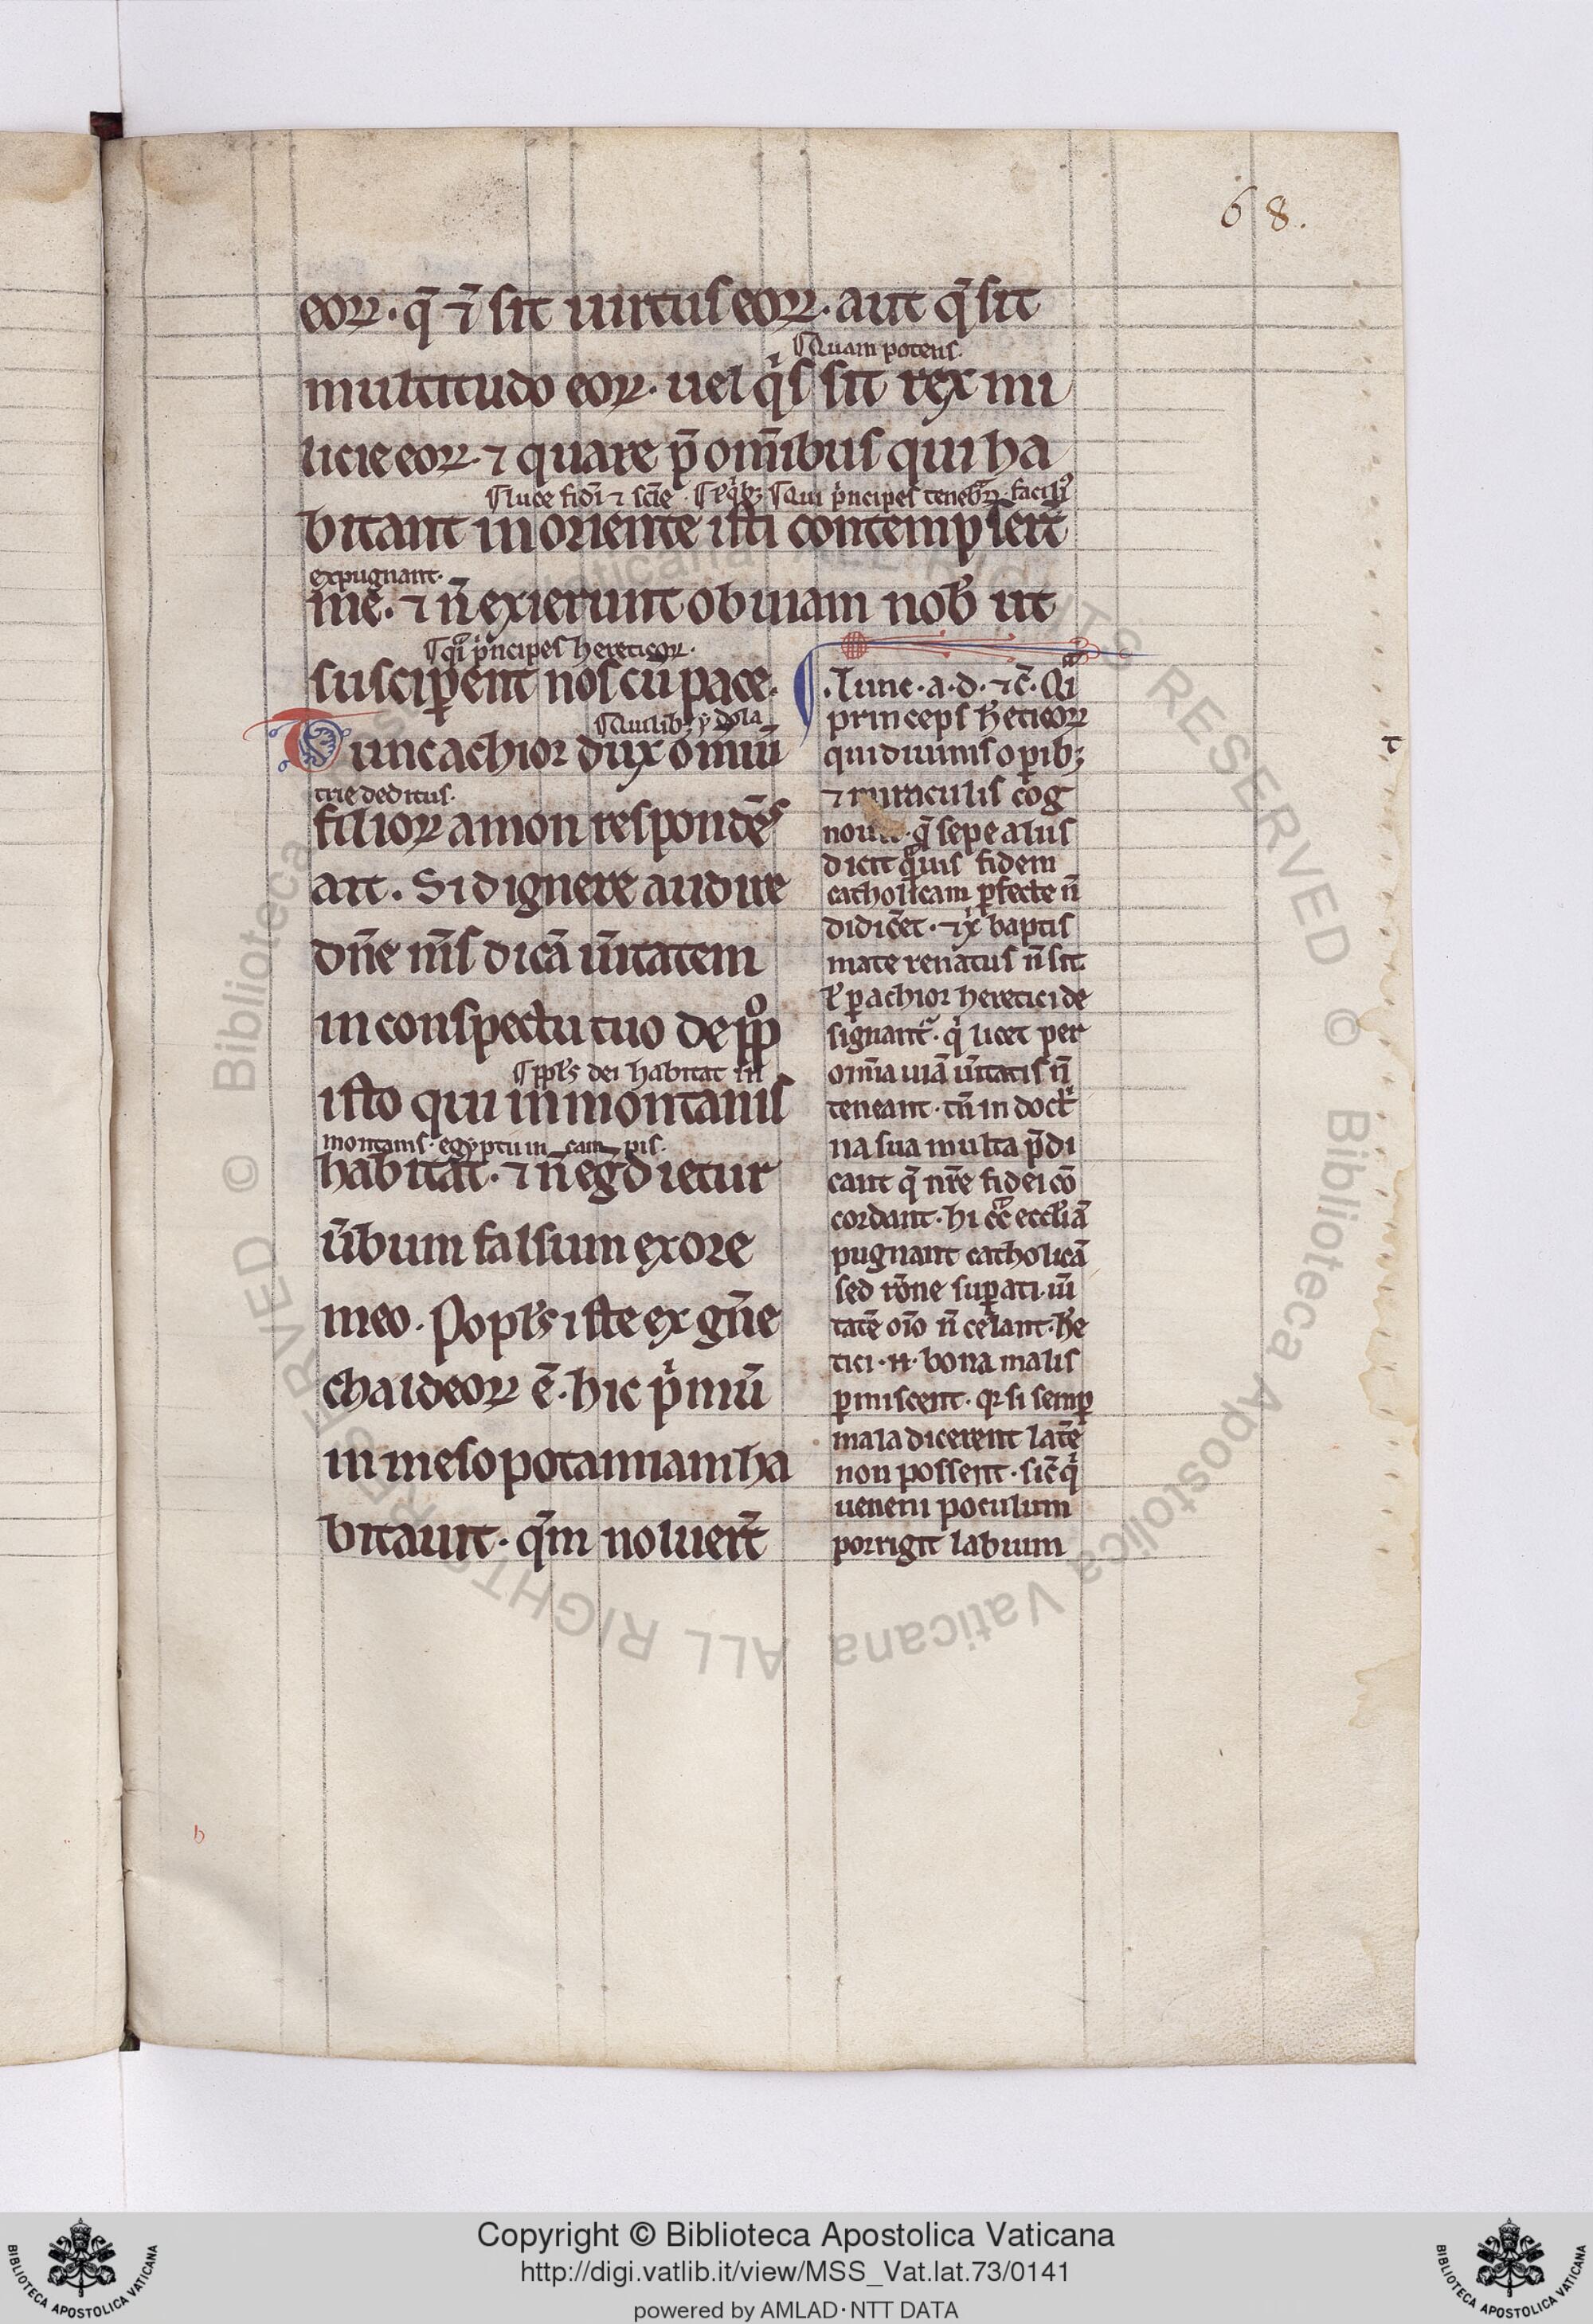 68.
eoꝝ. q̄ ⁊̄ sit uirtus eoꝝ. aut q̄ sit
¶Quam potens.
multitudo eoꝝ. uel qͥs sit rex mi
licie eoꝝ. ⁊ quare p̄ om̄ibus qui ha
¶luce fidei ⁊ sc̄ie. Qui pͥncipes faciliꝰ
bitant in oriente isti contempserͭ
expugnant.
me. ⁊ n̄ exierunt obuiam nob̓ ut
pͥncipes hereticoꝝ.
susciꝑent nos cū pace.
Tunc achior dux omniū
trie deditus.
filioꝝ amon respondēs
ait. Si dignere audire
dn̄e m̄s dicā ūitatem
in conspectu tuo de pp̄o
¶ppl̓s dei habitat in
isto qui in montanis
montanis. egyptum in campis.
habitat. ⁊ n̄ egᵈdietur
ūbum falsum ex ore
meo. Popl̓s iste ex gn̄e
chaldeoꝝ ē. hic pͥmū
in mesopotamiam ha
bitauit. qm̄ noluerͭ
.Tunc. a. d. ⁊c̄. Qͣi
princeps h̓eticoꝝ
qui diuinis oꝑibꝫ
⁊ miraculis cog
q̄ sepe aliis
dicit qͣuis fidem
catholicam ꝑfecte n̄
didic̄et. ⁊ xͥ baptis
mate renatus n̄ sit
ꝑ achior heretici de
signantͬ. qͥ licet per
omīa uiā ūitatis n̄
teneant. tn̄ in doctͥ
na sua multa p̄di
cant q̄ nr̄e fidei cō
cordant. hi ecc̓liā
pugnant catholicā
sed rōne suꝑati. iū
tatē oīo n̄ celant. h̓e
tici. n̄. bona malis
ꝑmiscent. qꝛ si semꝑ
mala dicerent latē̓
non possent. sic̄ qͥ
ueneni poculum
porrigit labium
b
Copyright © Biblioteca Apostolica Vaticana
http://digi.vatlib.it/view/MSS_Vat.lat.73/0141
powered by AMLAD·NTT DATA
BIBLIOTECA APOSTOLICA VATICANA
BIBLIOTECA APOSTOLICA VATICANA
© Biblioteca Apostolica Vaticana ALL RIGHTS RESERVED